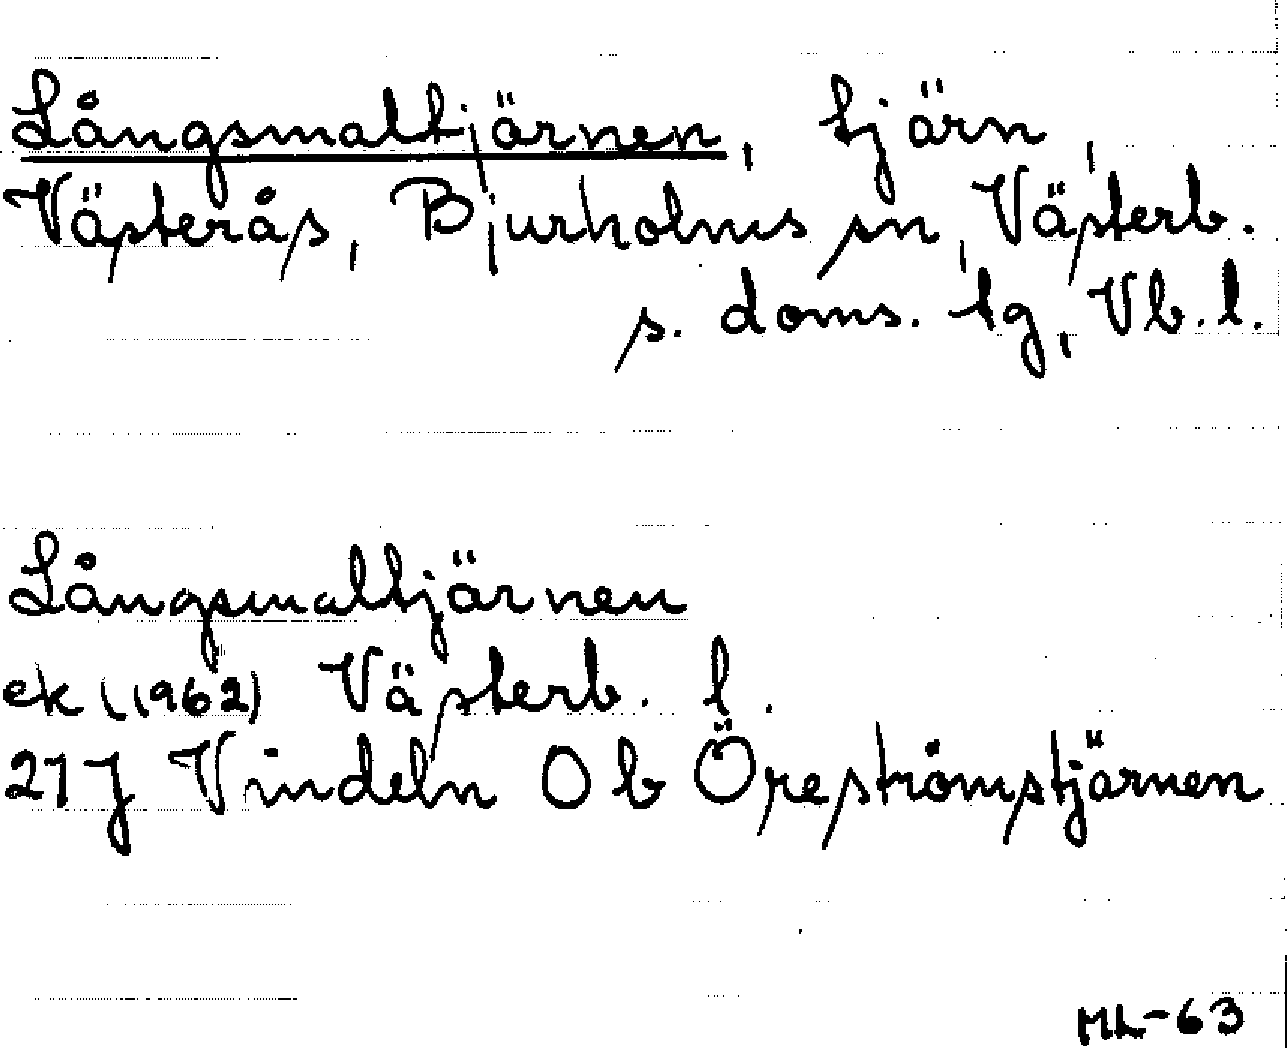 Långsmaltjärnen, tjärn,
Västerås, Bjurholms sn, Västerb.
s. doms. lg, Vb. l.
Långsmaltjärnen
ek (1962) Västerb. l.
21J Vindeln Ob Öreströmstjärnen
ML-63